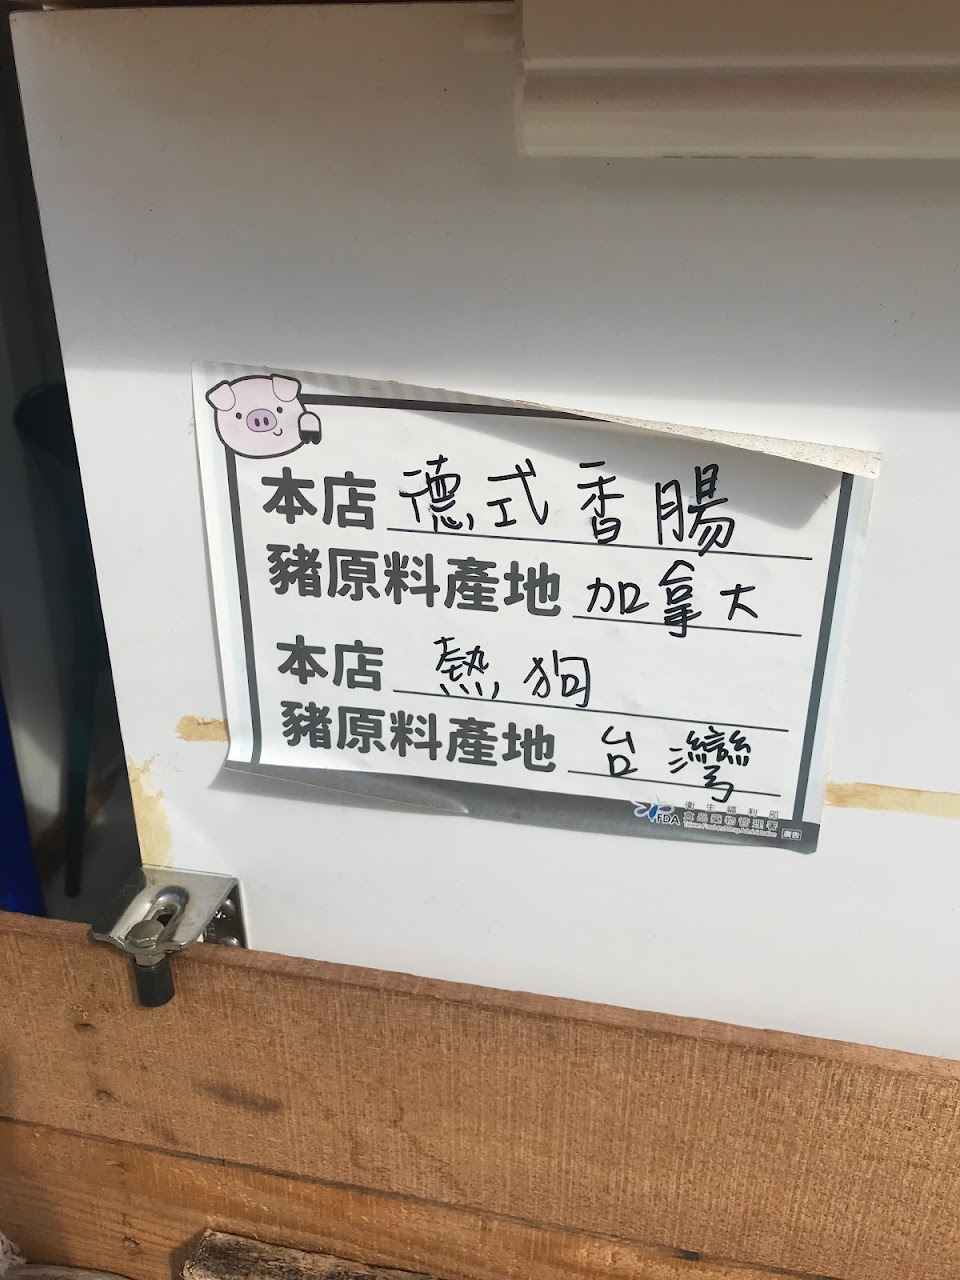 本店 德式香腸
豬原料產地 加拿大
本店 熱狗
豬原料產地 台灣
衛生福利部
FDA 食品藥物管理署
Taiwan Food and Drug Administration
廣告